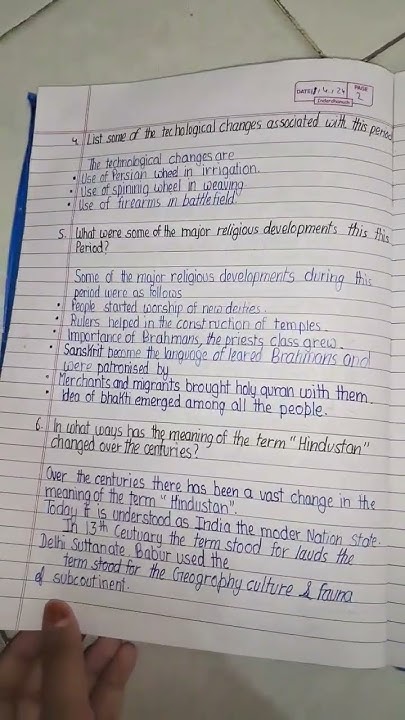 DATE: 1.4.24
PAGE
2
4. List some of the techological changes associated with this period
The technological changes are
• Use of Persian wheel in irrigation.
• Use of spinning wheel in weaving
• Use of firearms in battlefield.
5. What were some of the major religious developments this this
Period?
Some of the major religious developments during this
period were as follows
• People started worship of new deities.
• Rulers helped in the construction of temples.
• Importance of Brahmans, the priests class grew.
• Sanskrit become the language of leared Brahmans and
were patronised by
• Merchants and migrants brought holy quran with them.
• Idea of bhakti emerged among all the people.
6. In what ways has the meaning of the term "Hindustan"
changed over the centuries?
Over the centuries there has been a vast change in the
meaning of the term "Hindustan".
Today it is understood as India the moder Nation State.
In 13th Ceutuary the term stood for lauds the
Delhi Suttanate Babur used the
term stood for the Geography culture & fauna
of subcoutinent.